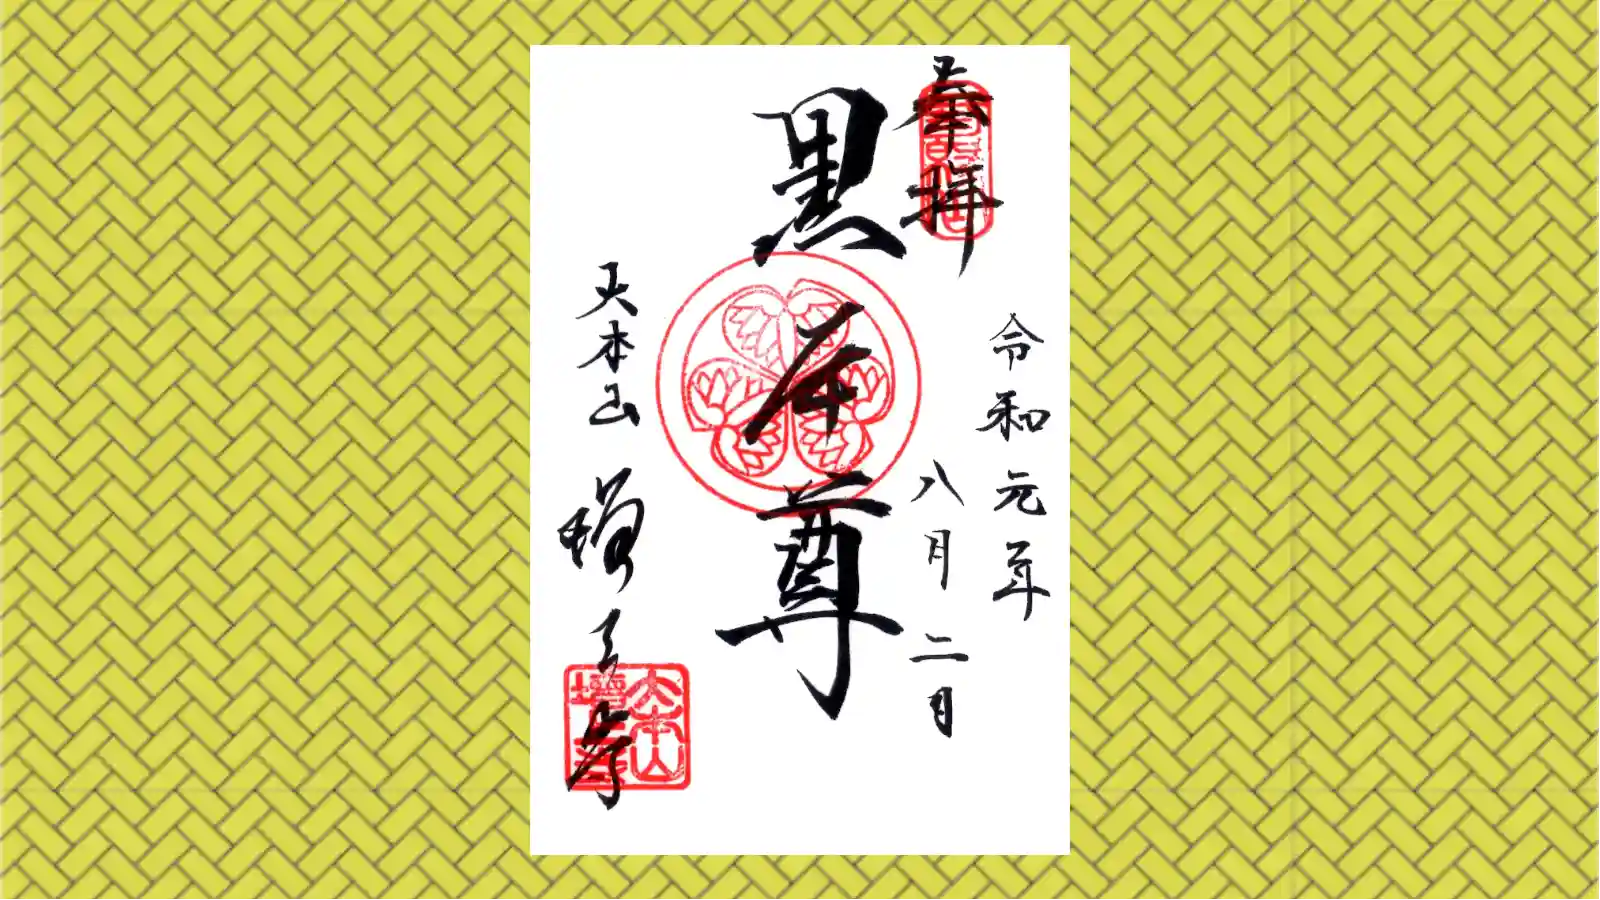 奉拝
令和元年
八月二日
黒本尊
大本山
増上寺
大本山
増上寺